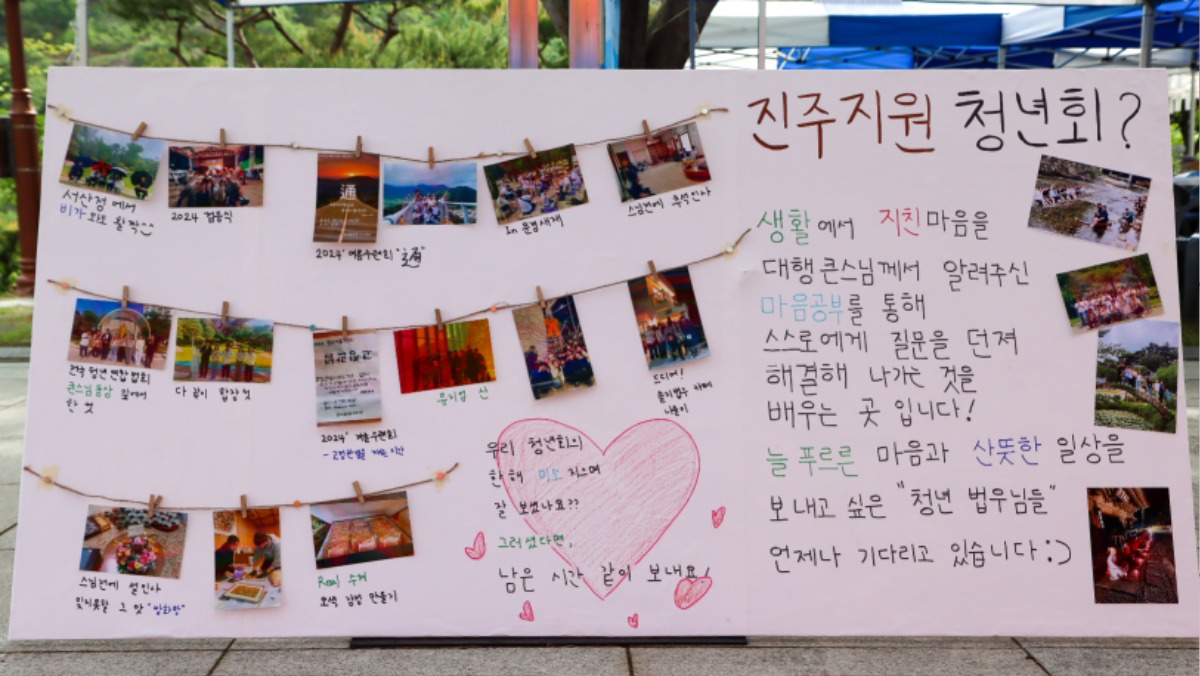 진주지원 청년회?
서산정에서
비가와도 활짝^^
2024 점등식
通
2024' 여름수련회 "通"
In 문경새재
스님전에 추석인사
생활에서 지친마음을
대행큰스님께서 알려주신
마음공부를 통해
스스로에게 질문을 던져
해결해 나가는 것을
배우는 곳 입니다!
늘 푸르른 마음과 산뜻한 일상을
보내고 싶은 "청년 법우님들"
언제나 기다리고 있습니다:)
전국 청년 연합 법회
큰스님 동상 앞에서
한 컷
다 같이 합장 컷
2024' 겨울수련회
산
드디어!
나들이
우리 청년회의
한해 미소 지으며
잘 보셨나요??
그러셨다면,
남은 시간 같이 보내요!
스님전에 설인사
잊지못할 그 맛
Real 수제
오색 강정 만들기